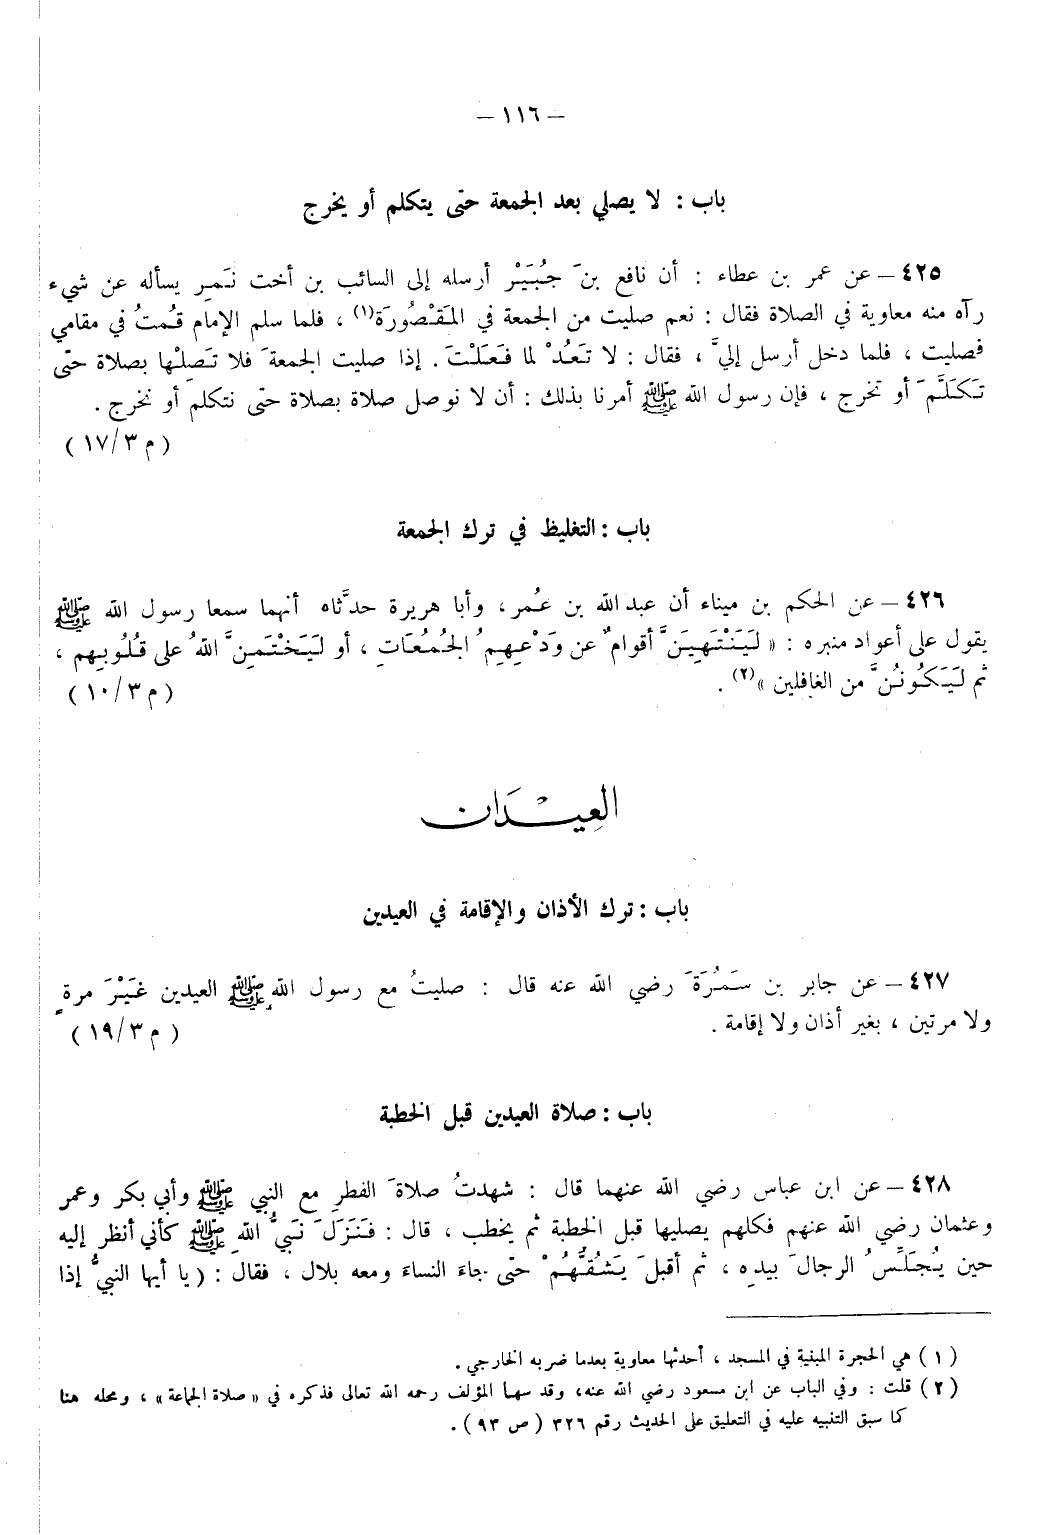 — ١١٦ —
باب : لا يصلي بعد الجمعة حتى يتكلم أو يخرج
٤٢٥ – عن عمر بن عطاء : أن نافع بنَ جُبَيْر أرسله إلى السائب بن أخت نَمِر يسأله عن شيء
رآه منه معاوية في الصلاة فقال : نعم صليت من الجمعة في المَقْصُورَة(١) ، فلما سلم الإمام قُمتُ في مقامي
فصليت ، فلما دخل أرسل إليَّ ، فقال : لا تَعُدْ لما فَعَلْتَ . إذا صليت الجمعةَ فلا تَصِلْها بصلاة حتّى
تَكَلَّمَ أو تخرج ، فإن رسول الله ﷺ أمرنا بذلك : أن لا نوصل صلاة بصلاة حتى نتكلم أو نخرج .
( م ٣/ ١٧ )
باب : التغليظ في ترك الجمعة
٤٢٦ – عن الحكم بن ميناء أن عبد الله بن عُمر ، وأبا هريرة حدَّثاه أنهما سمعا رسول الله ﷺ
يقول على أعواد منبره : « لَيَنْتَهِيَنَّ أقوامٌ عن وَدْعِهِمُ الجُمُعَاتِ ، أو لَيَخْتَمِنَّ اللهُ على قُلُوبِهم ،
ثم لَيَكُونُنَّ من الغافلين »(٢) .
( م ٣/ ١٠ )
العِيْدَان
باب : ترك الأذان والإقامة في العيدين
٤٢٧ – عن جابر بن سَمُرَةَ رضي الله عنه قال : صليتُ مع رسول الله ﷺ العيدين غَيْرَ مرةٍ
ولا مرتين ، بغير أذان ولا إقامة .
( م ٣/ ١٩ )
باب : صلاة العيدين قبل الخطبة
٤٢٨ – عن ابن عباس رضي الله عنهما قال : شهدتُ صلاةَ الفطرِ مع النبي ﷺ وأبي بكر وعمر
وعثمان رضي الله عنهم فكلهم يصليها قبل الخُطبة ثم يخطب ، قال : فَنَزَلَ نَبيُّ اللهِ ﷺ كأني أنظر إليه
حين يُجَلِّسُ الرجالَ بيدِه ، ثم أقبلَ يَشُقُّهُمْ حتّى جاءَ النساءَ ومعه بلال ، فقال : ( يا أيها النبيُّ إذا
( ١ ) هي الحجرة المبنية في المسجد ، أحدثها معاوية بعدما ضربه الخارجي .
( ٢ ) قلت : وفي الباب عن ابن مسعود رضي الله عنه، وقد سها المؤلف رحمه الله تعالى فذكره في « صلاة الجماعة » ، ومحله هنا
كما سبق التنبيه عليه في التعليق على الحديث رقم ٣٢٦ ( ص ٩٣ ) .